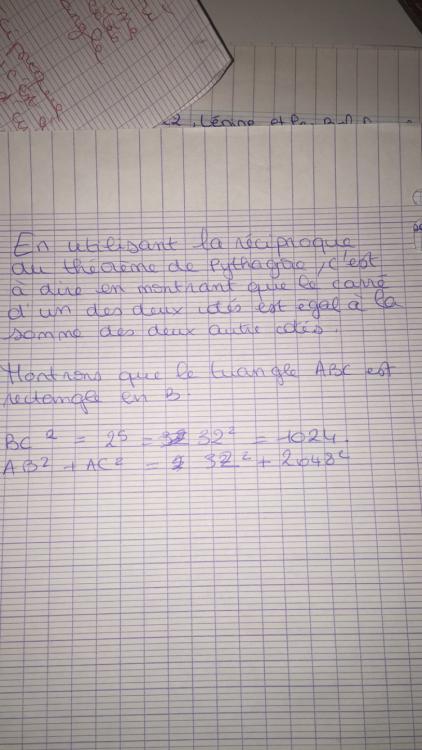 ciproque
angle
2, Lénine et
En utilisant la réciproque
du théorème de Pythagore, c'est
à dire en montrant que le carré
d'un des deux cotés est égal à la
somme des deux autre cotés.
Montrons que le triangle ABC est
rectangle en B.
BC² = 2⁵ = 32² = 1024.
AB² + AC² = 32² + 2048²